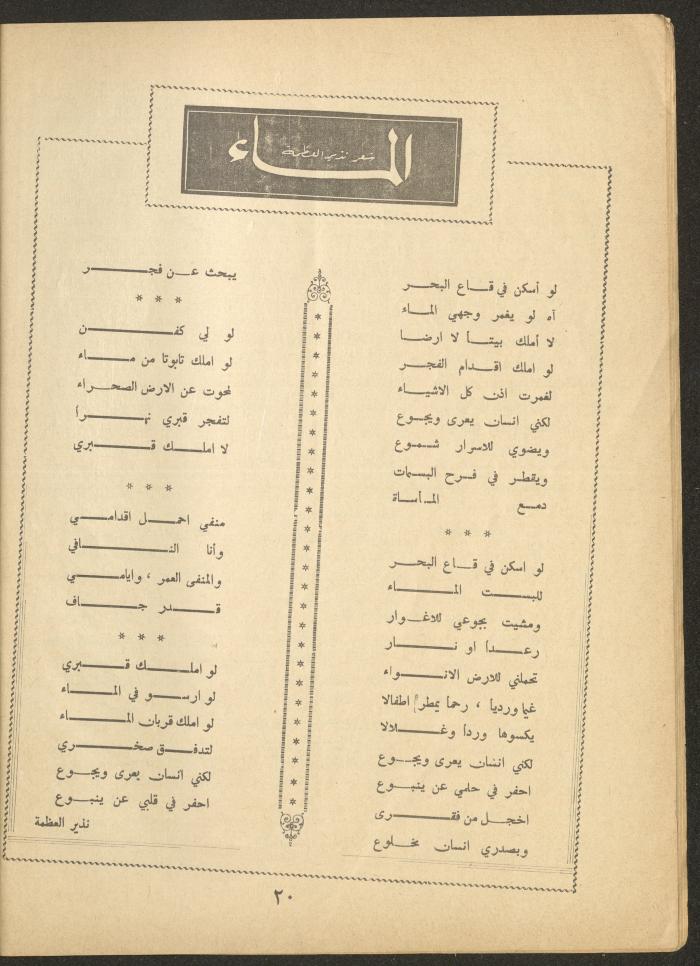 الماء
شعر نذير العظمة
لو أسكن في قاع البحر
آه لو يغمر وجهي الماء
لا أملك بيتاً لا ارضا
لو املك اقدام الفجر
لغمرت اذن كل الاشياء
لكني انسان يعرى ويجوع
ويضوي للاسرار شموع
ويقطر في فرح البسمات
دمع المأساة
* * *
لو اسكن في قاع البحر
للبست الماء
ومشيت بجوعي للاغوار
رعدا او نار
تحملني للارض الانواء
غيا ورديا ، رحما يمطر اطفالا
يكسوها وردا وغلالا
لكني انسان يعرى ويجوع
احفر في حلمي عن ينبوع
اخجل من فقرى
وبصدري انسان مخلوع
يبحث عن فجر
* * *
لو لي كفن
لو املك تابوتا من ماء
لمحوت عن الارض الصحراء
لتفجر قبري نهرا
لا املك قبري
* * *
منفي احمل اقدامي
وأنا النافي
والمنفى العمر ، وايامي
قدر جاف
* * *
لو املك قبري
لو ارسو في الماء
لو املك قربان الماء
لتدفق صخري
لكني انسان يعرى ويجوع
احفر في قلبي عن ينبوع
نذير العظمة
٢٠